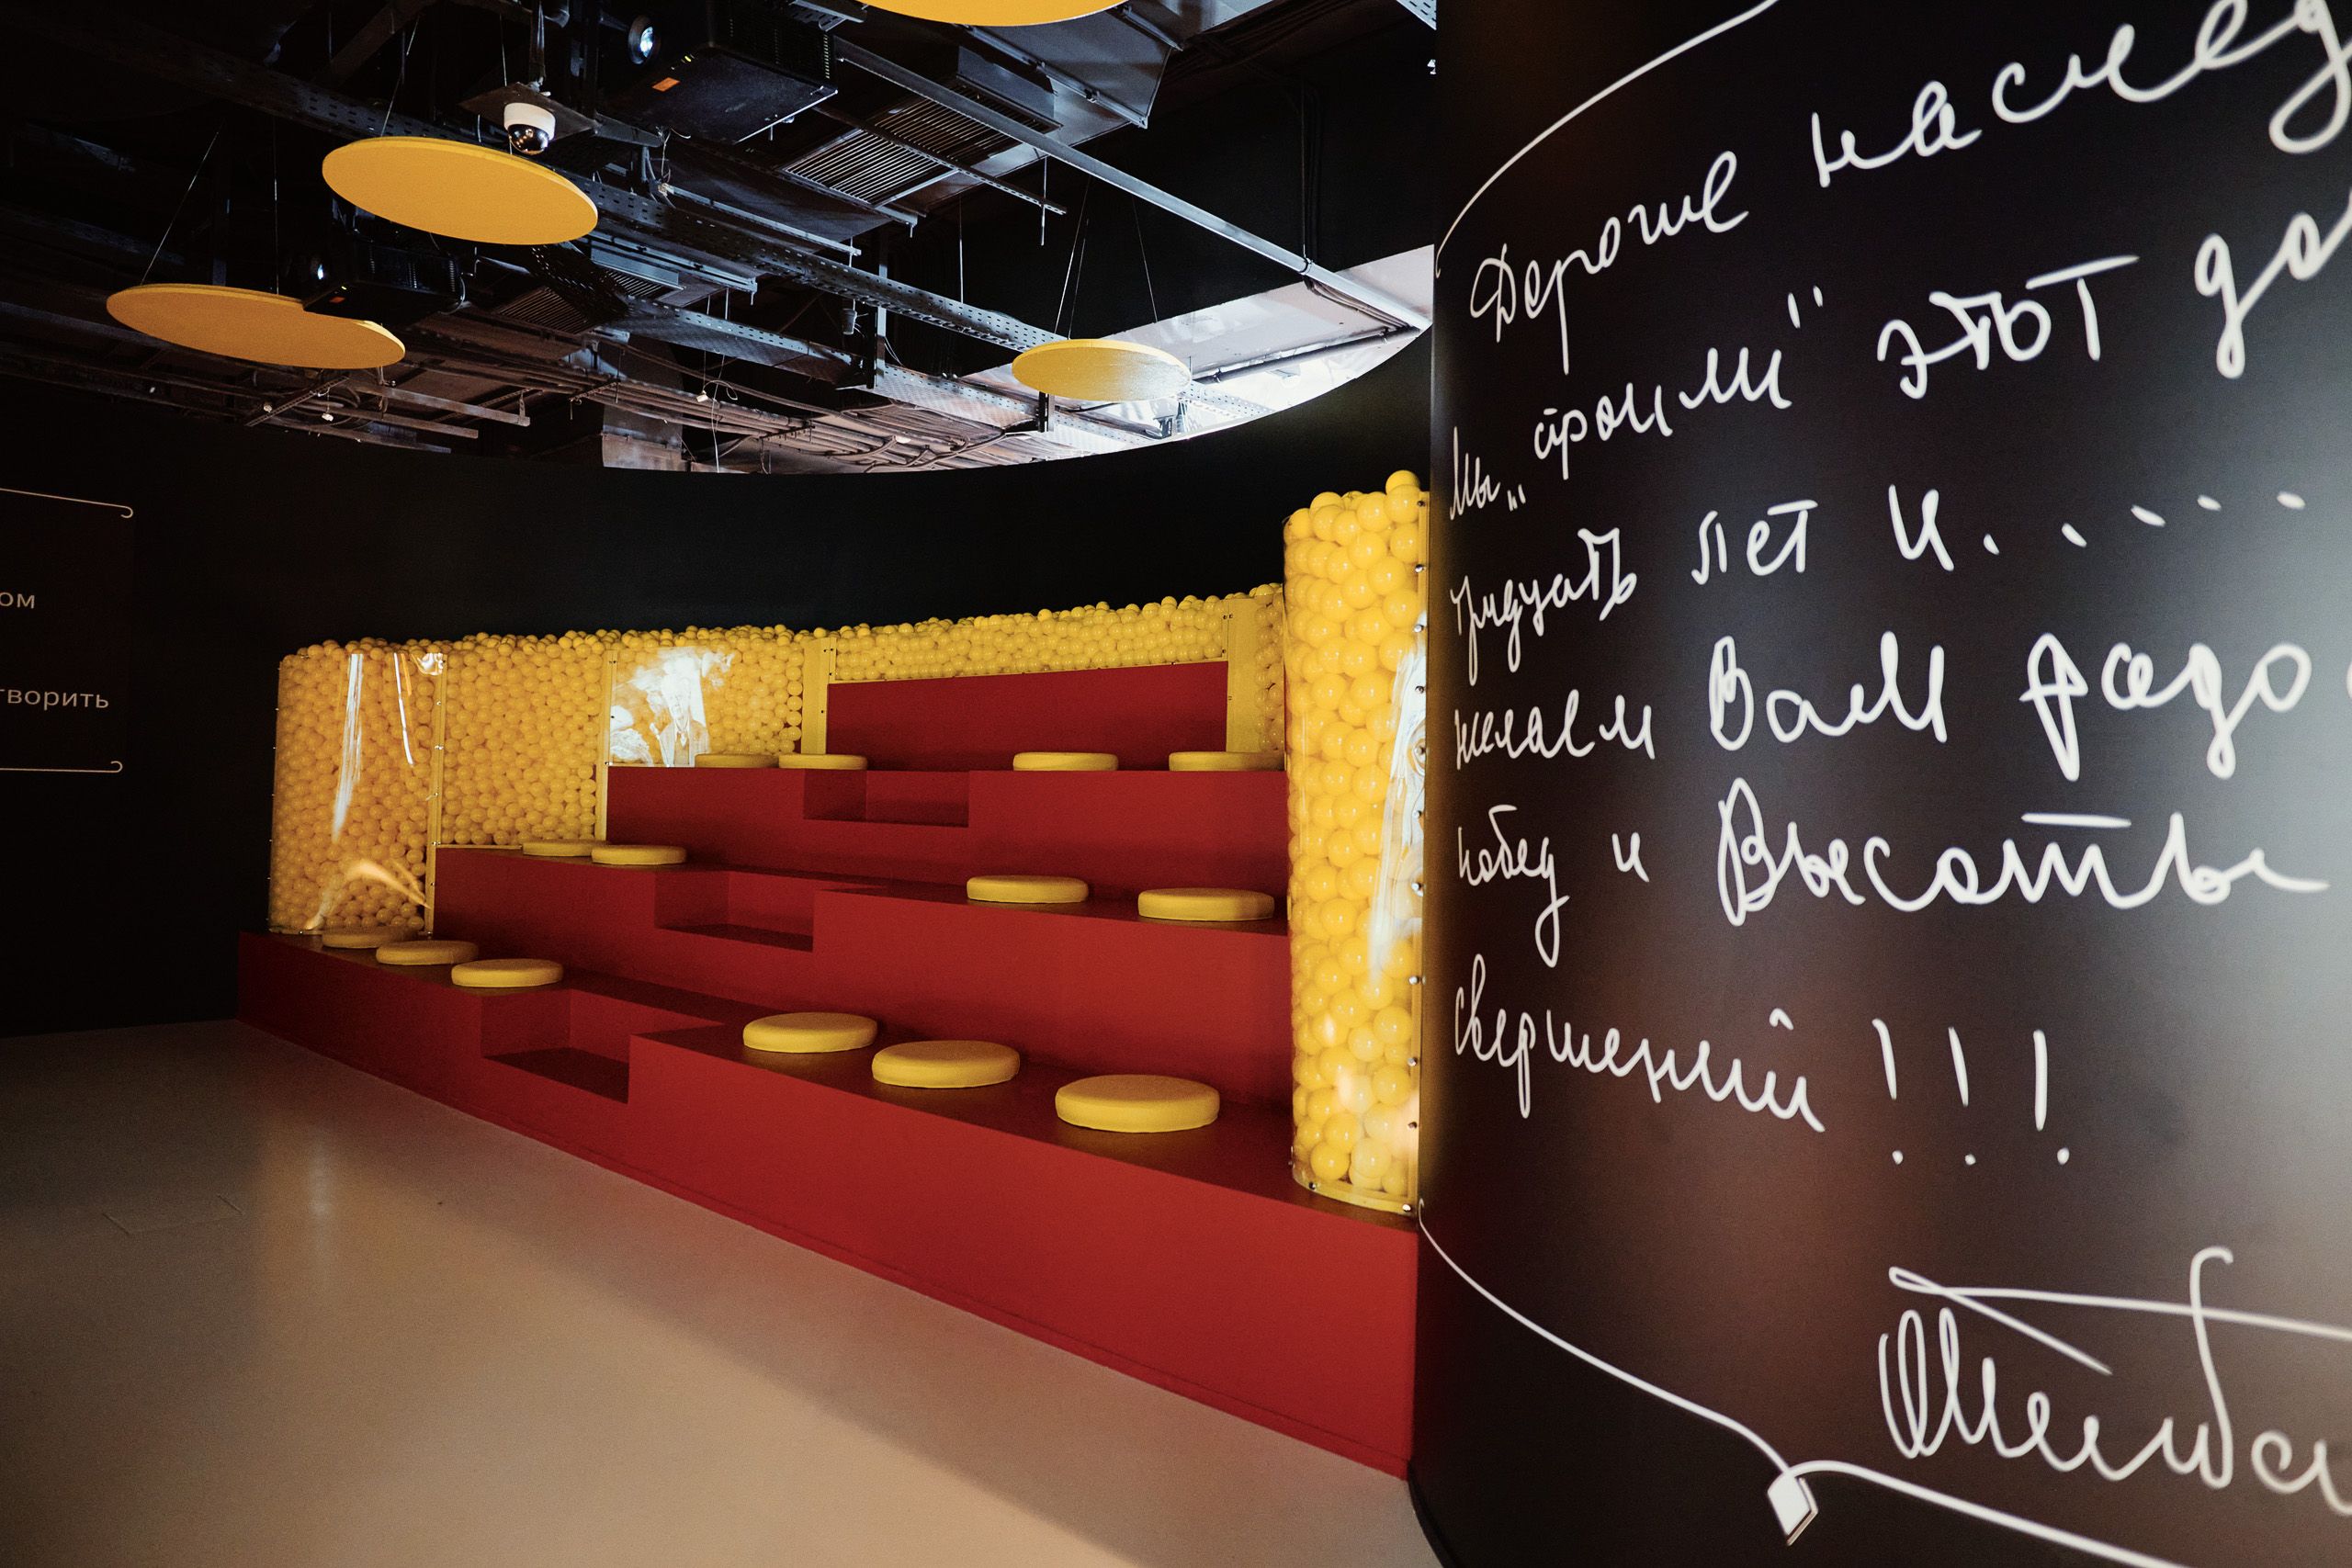 ом
творить
Дороже наслед
Мы „строим" этот до
тридцать лет и......
желаем Вам радо
побед и Высоты
свершений!!!